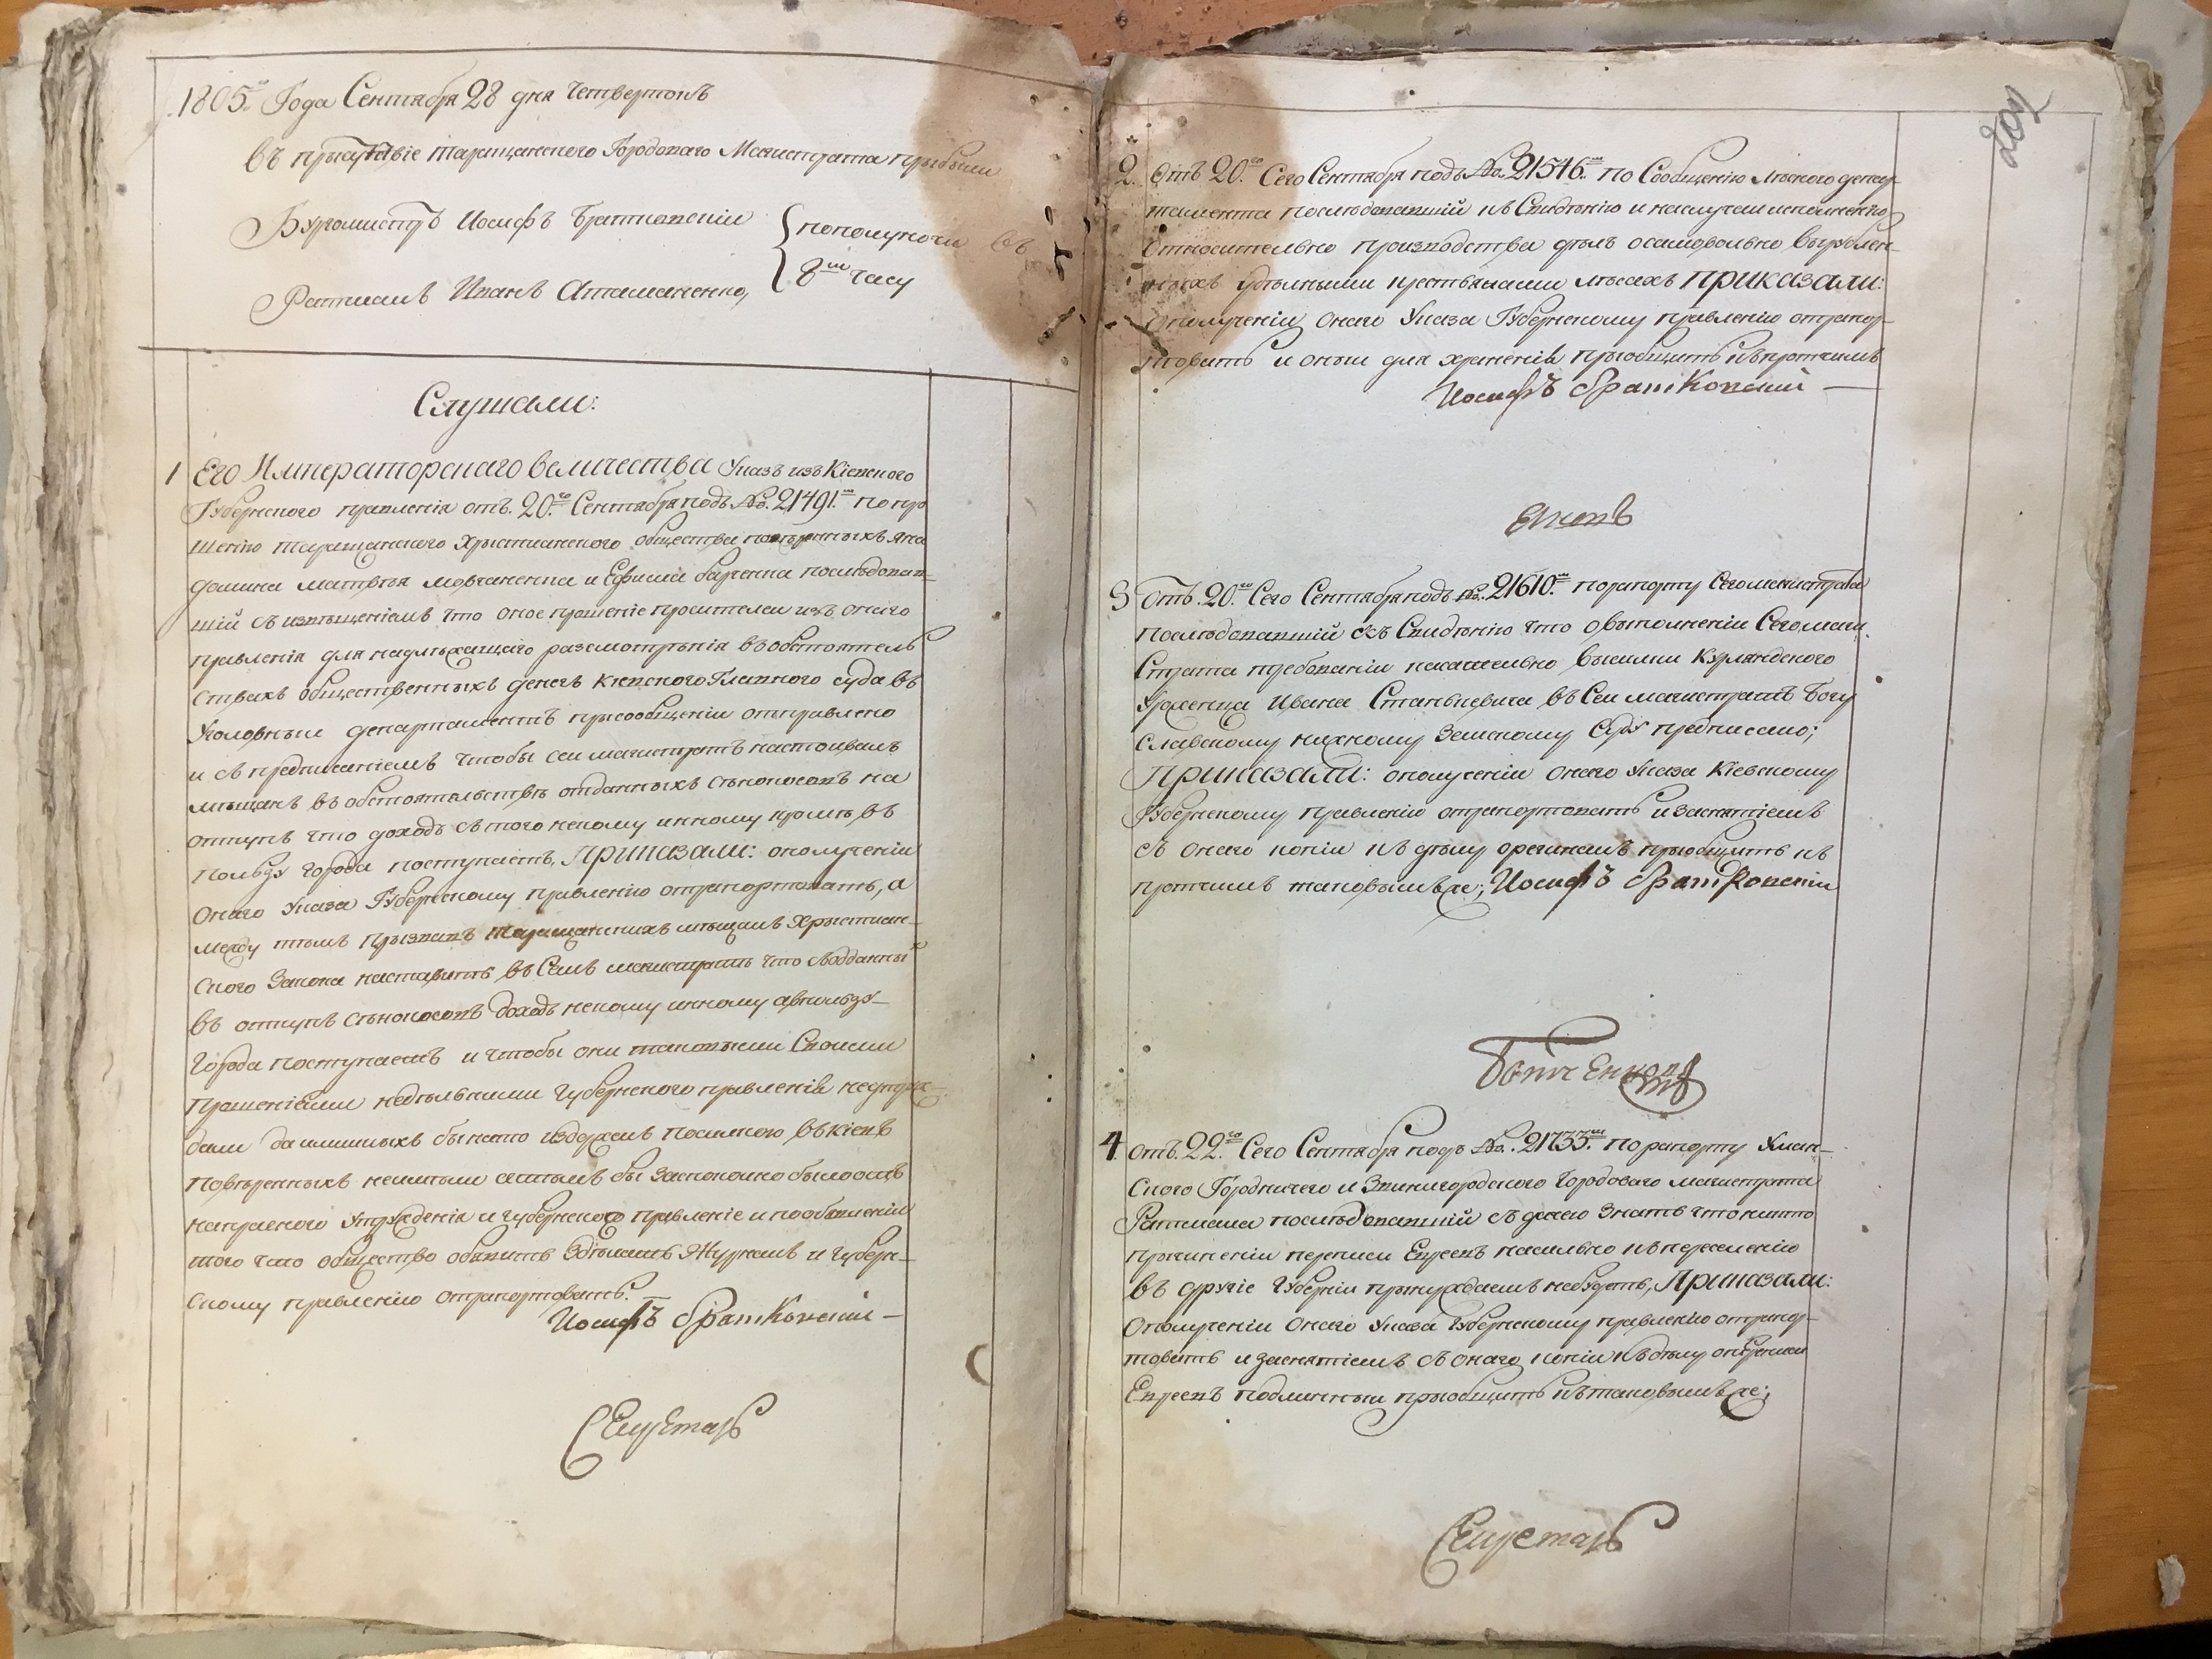 1805го Года Сентября 28 дня Четвертокъ
Въ прысутствіе таращанского Городоваго Магистрата прыбыли
Бургомистръ Иосифъ Братковскій
пополуночи въ
8мъ часу
Ратманъ Иванъ Атаманенко,
Слушали:
1 Его Императорскаго величества Указъ изъ Кіевского
Губернского правленія отъ 20го Сентября подъ №. 21491м по про
шенію таращанского Хрыстианского общества поверенныхъ
Матвея Мовчаненка и Ефима последовав
шій съ изъявленіемъ что оное прошеніе просителей изъ оного
правленія для надлежащаго разсмотренія въ обстоятель
ствахъ общественныхъ денегъ Кіевского Главного суда въ
Уголовный департаментъ при сообщеніи отправлено
и съ предписаніемъ чтобы сей магистратъ настоивалъ
мещанъ въ обстоятельстве отданныхъ сенокосовъ на
откупъ что доходъ съ того некому инному кроме въ
пользу города поступаетъ, Приказали: о полученіи
оного Указа Губернскому правленію отрапортовать, а
между темъ прызвавъ таращанскихъ мещанъ Хрыстиан-
ского Закона наставить въ Семъ магистрате что съ отданны
въ откупъ сенокосовъ доходъ некому инному а въ пользу
города поступаетъ и чтобы они таковыми Своими
прошеніями недельными Губернского правленія не
бали да и лишныхъ бы на то издержекъ посылкою въ Кіевъ
поверенныхъ неимели
напрасного Утружденія и Губернского правленіе и по обявленіи
того что общество обявитъ Зделать Журналъ и Губерн-
скому правленію отрапортовать.
Иосифъ Братковскій
Секретарь
2. отъ 20го Сего Сентября подъ №. 21546м по Сообщенію лесного депар-
тамента последовавшій къ Сведенію и наслучай исполненію
относительно производства делъ о самовольно вырублен-
ныхъ удельными крестьянами лесахъ Приказали:
о полученіи оного Указа Губернскому правленію отрапор-
товать и оный для храненія прыобщить къ протчимъ
Иосифъ Братковскій
3 отъ. 20го Сего Сентября подъ №. 21610м по рапорту Сего магистрата
последовавшій къ Сведенію что о выполненіи Сего маги
Страта требованіи касательно высылки Курляндского
Уроженца Ивана Станкевича въ Сей магистратъ Богу
славскому нижному Земскому Суду предписано;
Приказали: о полученіи оного Указа Кіевскому
Губернскому правленію отрапортовать и заснятіемъ
съ оного копіи къ делу оригиналъ прыобщить къ
протчимъ таковымъ же; Иосифъ Братковскій
4 отъ. 22го Сего Сентября подъ №. 21733м По рапорту Уман-
ского Городничего и Звинигородского Городового магистрата
Ратмана последовавшій съ дачею Знать что никто
при чиненіи переписи Евреевъ насильно къ переселенію
въ другіе Губерніи принуждаемъ небудетъ, Приказали:
о полученіи оного Указа Губернскому правленію отрапор-
товать и заснятіемъ съ оного копіи къ делу о
Евреевъ подлинный прыобщить къ таковымъ же;
Секретарь